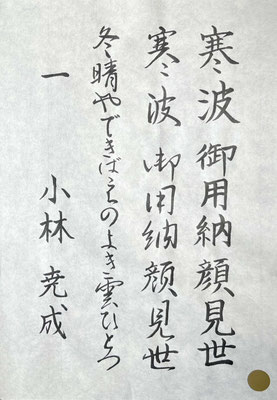 寒波 御用納 顔見世
寒波 御用納 顔見世
冬晴やできばえのよき雲ひとつ
一 小林 尭成